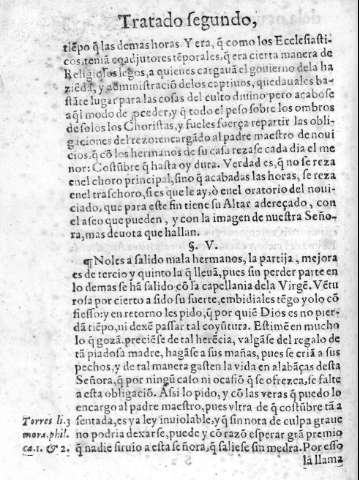 Tratado segundo,
tiẽpo q̃ las demas horas. Y era, q̃ como los Ecclesiasti-
cos, teniã coadjutores tẽporales, q̃ era cierta manera de
Religiosos legos, a quienes cargauã el gouierno dela ha
ziẽda, y administraciõ delos captiuos, quedauales ba-
stãte lugar para las cosas del culto diuino pero acabose
aq̃l modo de proceder, y q̃ todo el peso sobre los ombros
de solos los Choristas, y fueles fuerça repartir las obli-
gaciones del rezo encargãdo al padre maestro de noui
cios, q̃ cõ los hermanos de su casa rezase cada dia el me
nor: Costũbre q̃ hasta oy dura. Verdad es, q̃ no se reza
en el choro principal, sino q̃ acabadas las horas, se reza
en el traschoro, si es que le ay, ò en el oratorio del noui-
ciado, que para este fin tiene su Altar adereçado, con
el aseo que pueden, y con la imagen de nuestra Seño-
ra, mas deuota que hallan.
§. V.
¶ No les a salido mala hermanos, la partija, mejora
es de tercio y quinto la q̃ lleuã, pues sin perder parte en
lo demas se hã salido cõ la capellania dela Virgẽ. Vẽtu
rosa por cierto a sido su suerte, embidiales tẽgo yo lo cõ
fiesso: y en retorno les pido, q̃ por quiẽ Dios es no pier-
dã tiẽpo, ni dexẽ passar tal coyũtura. Estimẽ en mucho
lo q̃ gozã, preciẽse de tal herẽcia, valgãse del regalo de
tã piadosa madre, hagãse a sus mañas, pues se criã a sus
pechos, y de tal manera gasten la vida en alabãças desta
Señora, q̃ por ningũ caso ni ocasiõ q̃ se ofrezca, se falte
a esta obligaciõ. Assi lo pido, y cõ las veras q̃ puedo lo
encargo al padre maestro, pues vltra de q̃ costũbre tã a
sentada, es ya ley inuiolable, y q̃ sin nota de culpa graue
no podria dexarse, puede y cõ razõ esperar grã premio
q̃ nadie siruio a esta señora, q̃ saliese sin medra. Por esso
la llama
Torres li. 3
mora. phil.
ca. 1. & 2.